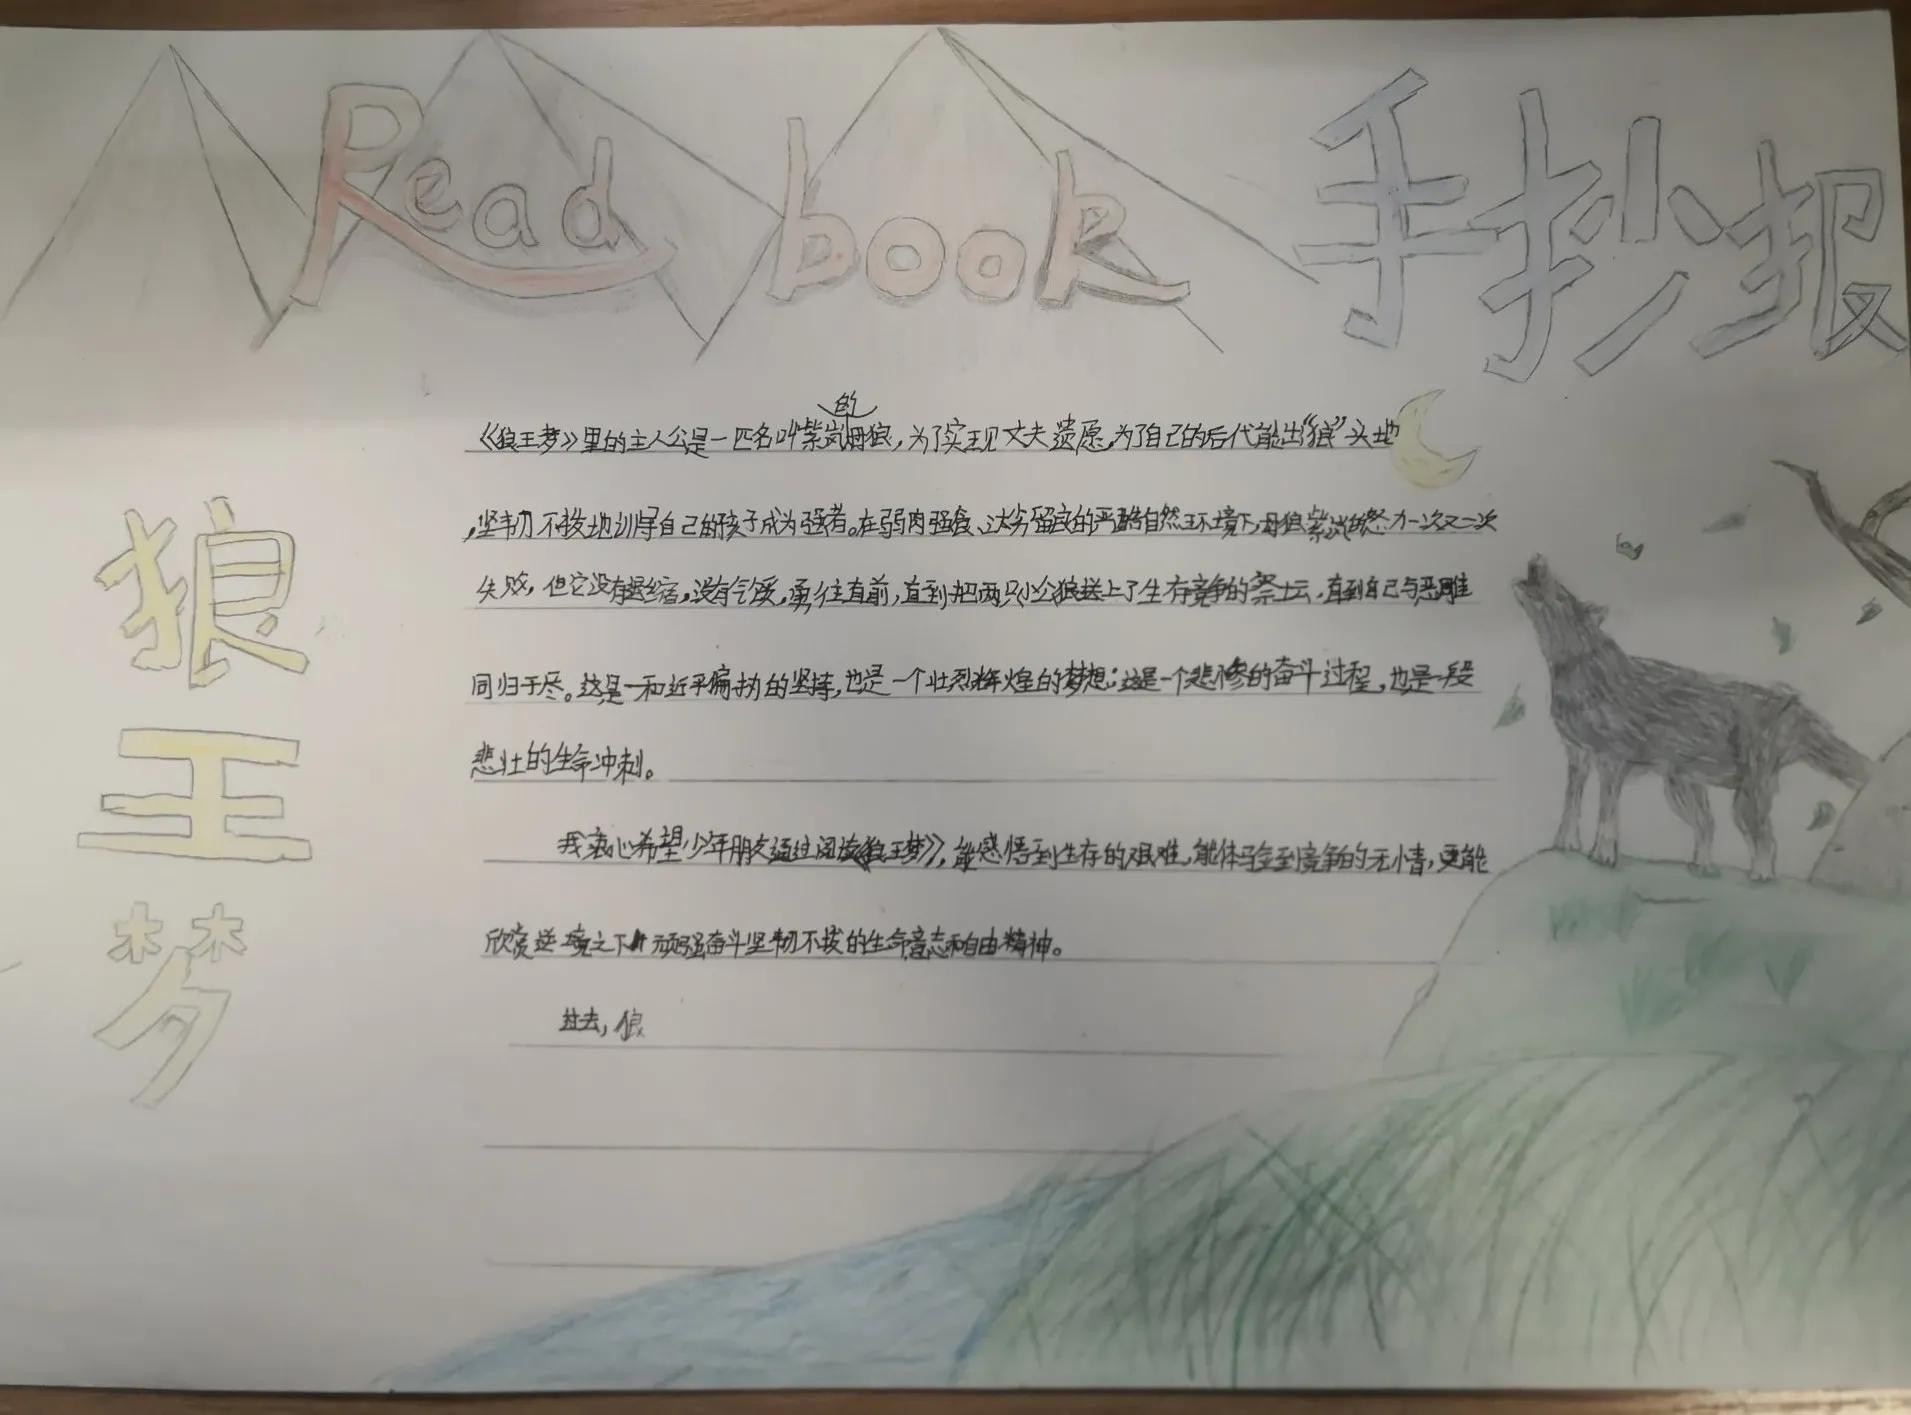 Read book 手抄报
狼王梦
《狼王梦》里的主人公是一匹名叫紫岚的母狼，为了实现丈夫遗愿，为了自己的后代能出“狼”头地
，坚韧不拔地训导自己的孩子成为强者。在弱肉强食、汰劣留良的严酷自然环境下，母狼紫岚努力一次又一次
失败，但它没有退缩，没有气馁，勇往直前，直到把两只小公狼送上了生存竞争的祭坛，直到自己与恶雕
同归于尽。这是一种近乎偏执的坚持，也是一个壮烈辉煌的梦想；这是一个悲惨的奋斗过程，也是一段
悲壮的生命冲刺。
我衷心希望少年朋友通过阅读《狼王梦》，能感悟到生存的艰难，能体验到竞争的无情，更能
欣赏逆境之下顽强奋斗坚韧不拔的生命意志和自由精神。
过去，狼